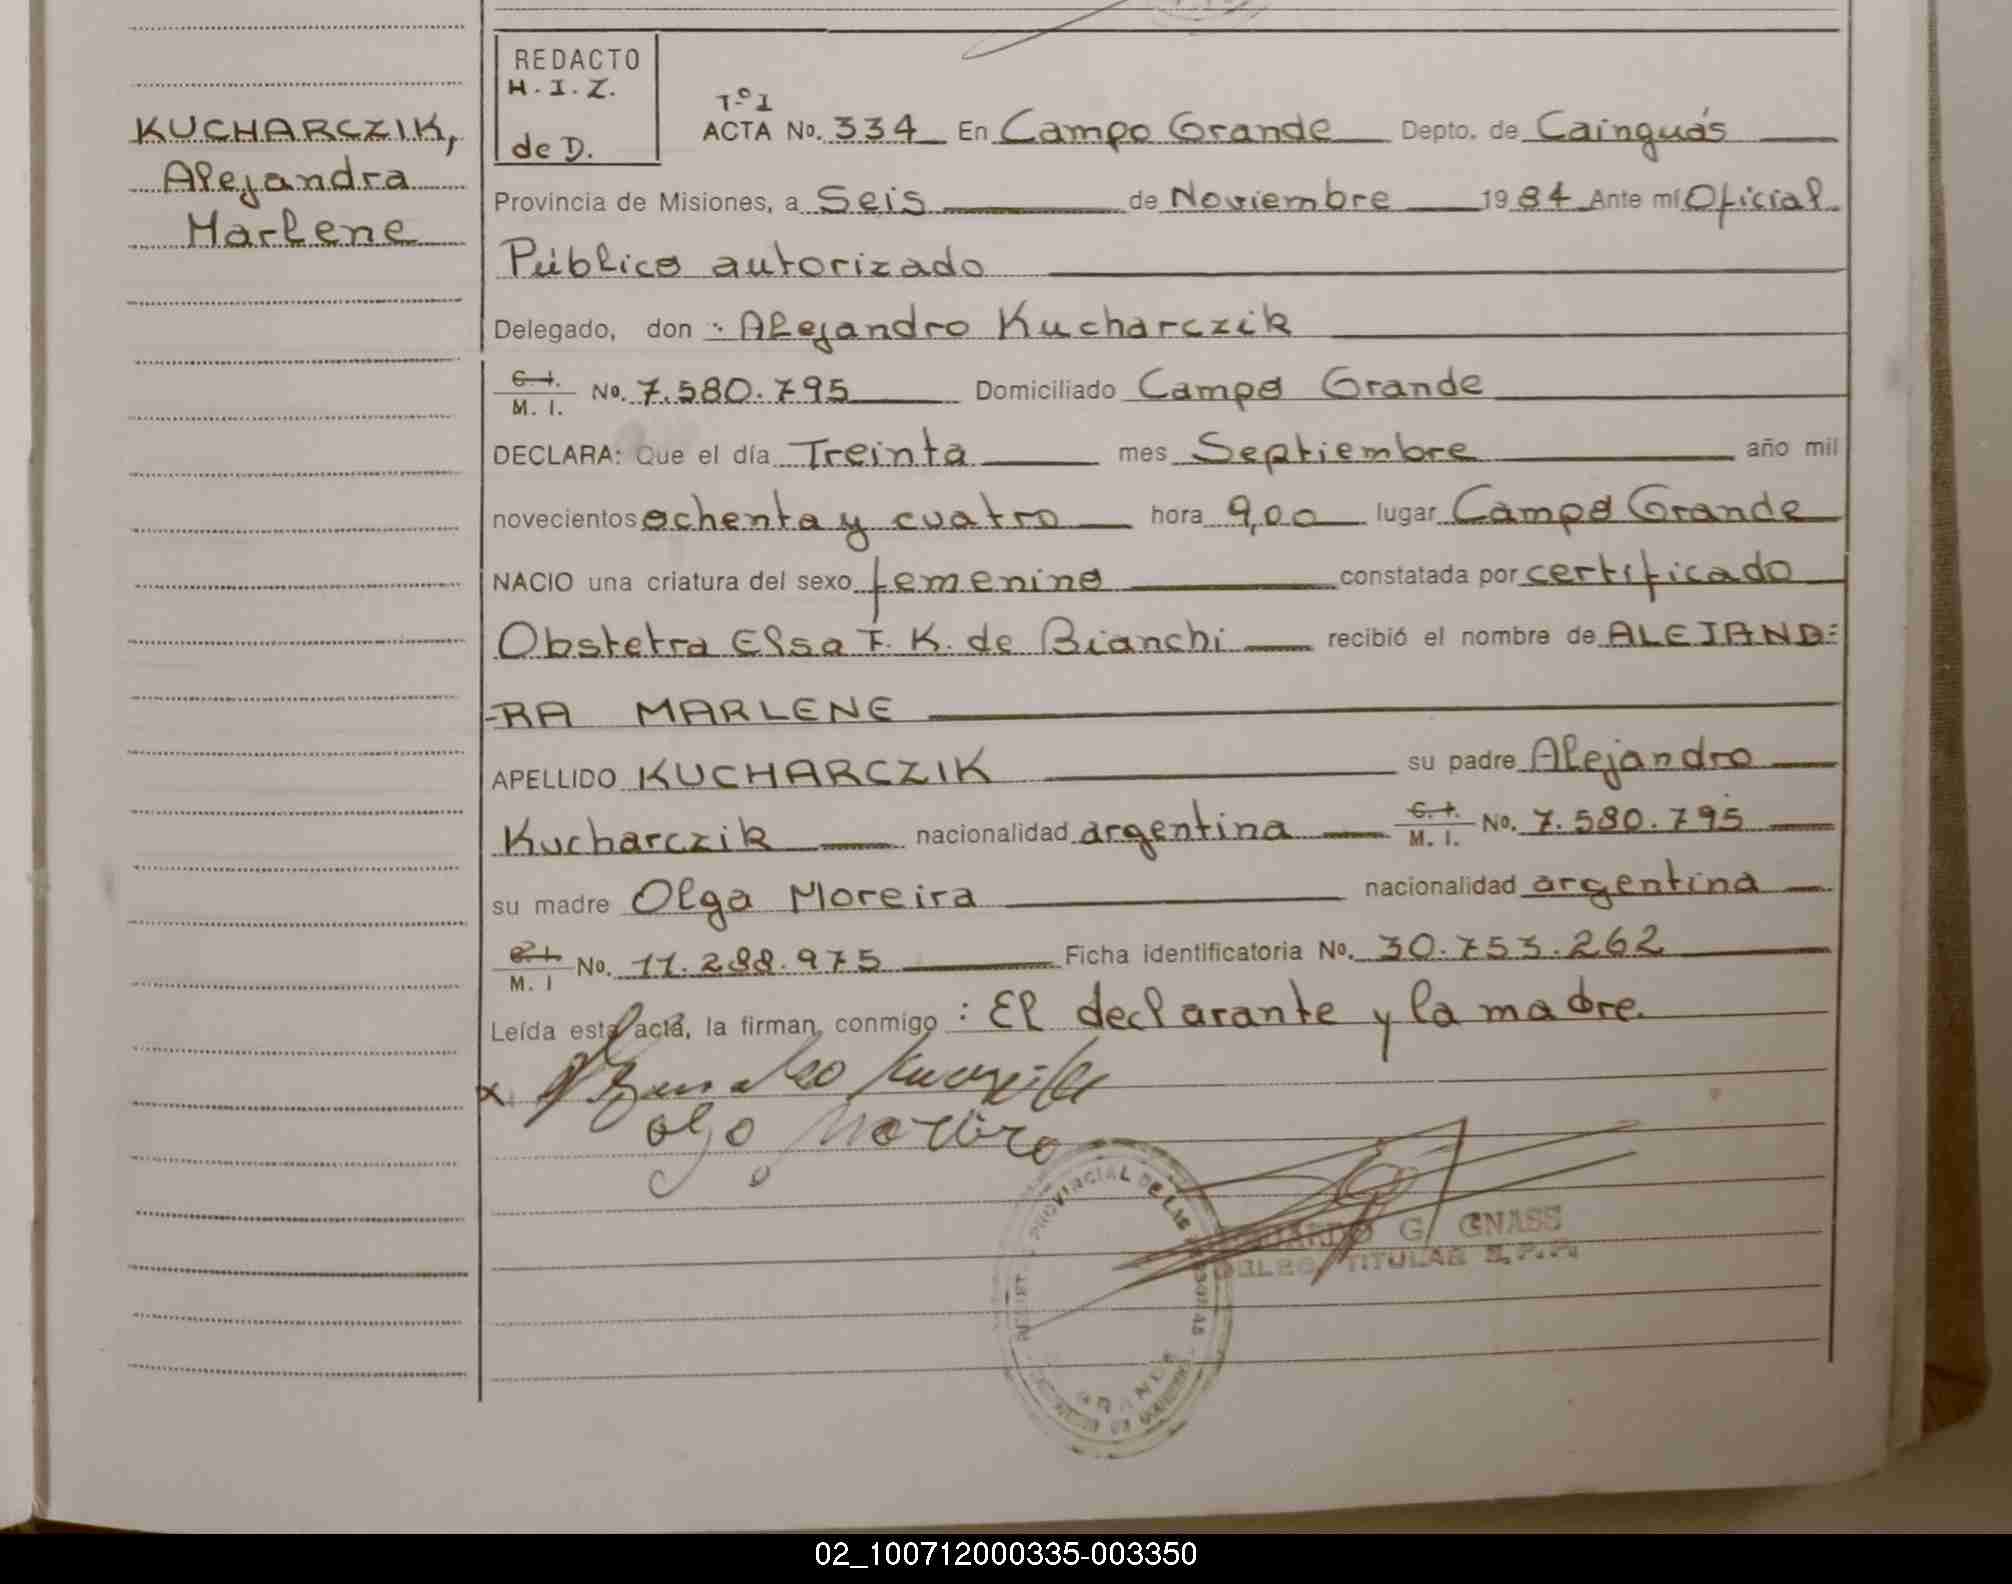 KUCHARCZIK,
Alejandra
Marlene
REDACTO
H.I.Z.
de D.
Tº I
ACTA No. 334 En Campo Grande Depto. de Cainguás
Provincia de Misiones, a Seis de Noviembre 1984 Ante mí Oficial
Público autorizado
Delegado, don : Alejandro Kucharczik
C.I. M. I. No. 7.580.795 Domiciliado Campo Grande
DECLARA: Que el día Treinta mes Septiembre año mil
novecientos ochenta y cuatro hora 9,00 lugar Campo Grande
NACIO una criatura del sexo femenino constatada por certificado
Obstetra Elsa F. K. de Bianchi recibió el nombre de ALEJAND=
-RA MARLENE
APELLIDO KUCHARCZIK su padre Alejandro
Kucharczik nacionalidad argentina C.I. M. I. No. 7.580.795
su madre Olga Moreira nacionalidad argentina
C.I. M. I No. 11.288.975 Ficha identificatoria No. 30.753.262
Leída esta acta, la firman conmigo : El declarante y la madre.
x
Olga Moreira
PROVINCIAL DE LAS PERSONAS
G. GNASS
DELEG. TITULAR R.P.P.
GRANDE
02_100712000335-003350